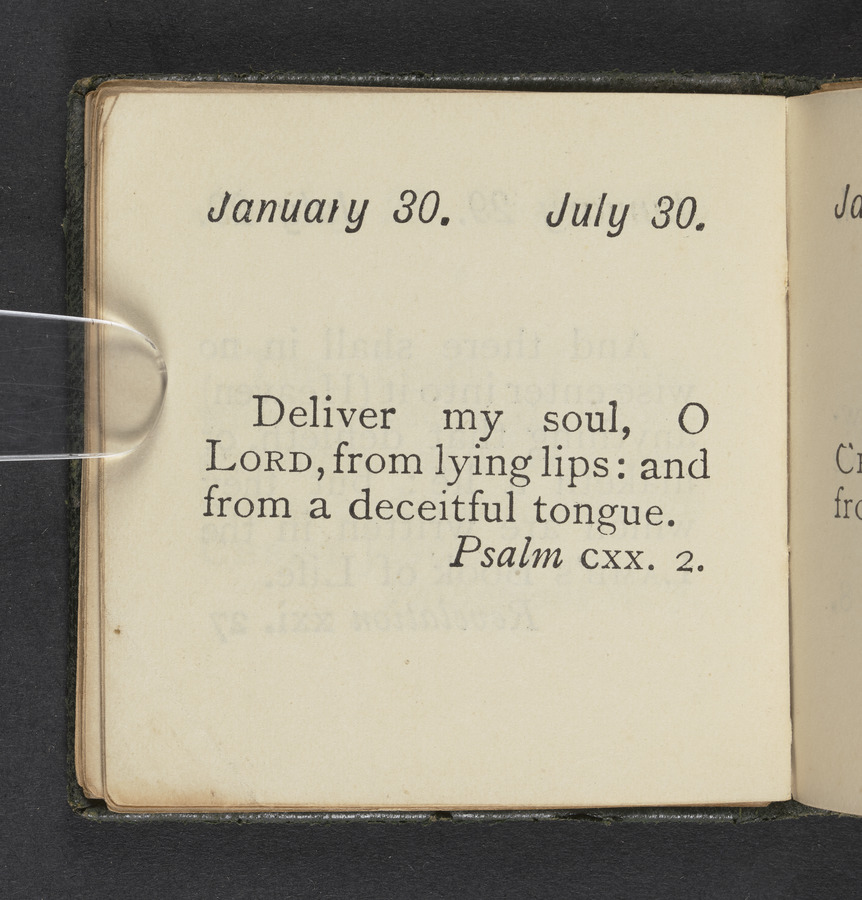 January 30. July 30.
Deliver my soul, O
LORD, from lying lips: and
from a deceitful tongue.
Psalm CXX. 2.
Ja